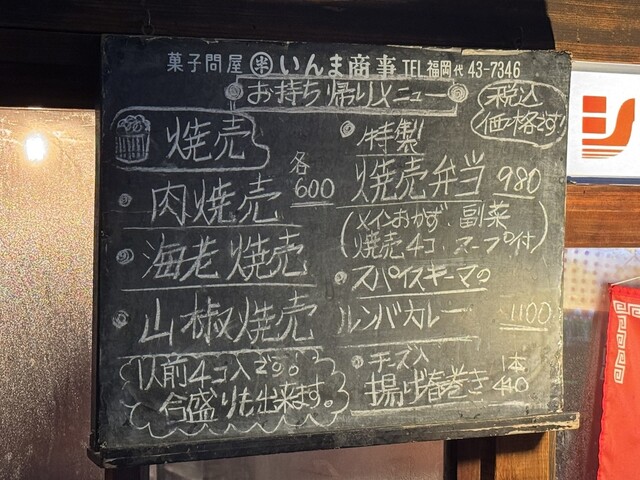 菓子問屋 半 いんま商事 TEL福岡代 43-7346
お持ち帰りメニュー
税込
価格です!
焼売
各
600
肉焼売
海老焼売
山椒焼売
1人前4コ入
合盛りも出来ます。
特製
焼売弁当 980
(メインおかず、副菜
焼売4コ、スープ付)
スパイスキーマの
ルンバカレー 1100
チーズ入
揚げ春巻き 1本
440